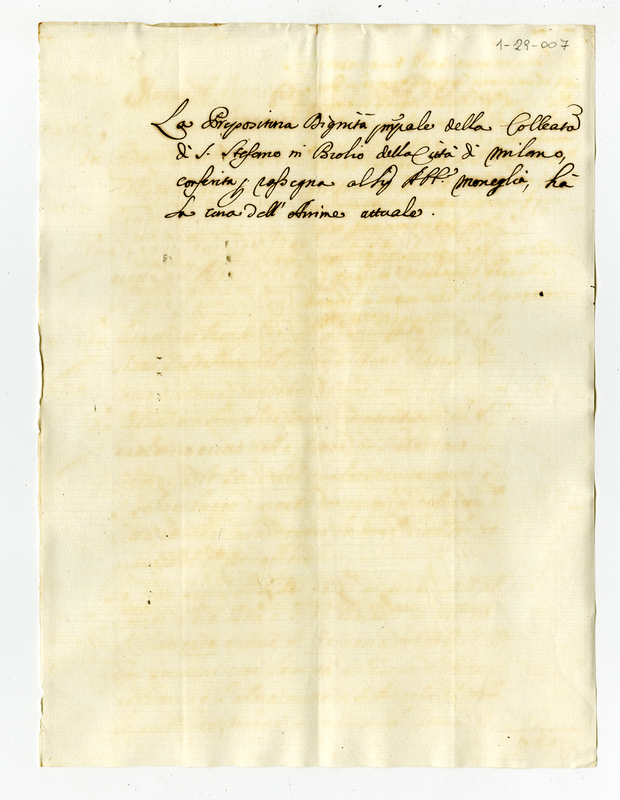 1-29-007
La Prepositura Dignità pnpale della Colleata
di S. Stefano in Brolio della Città di Milano,
conferita p rassegna al Sig Abb.e Moneglia, hà
la cura dell' Anime attuale.